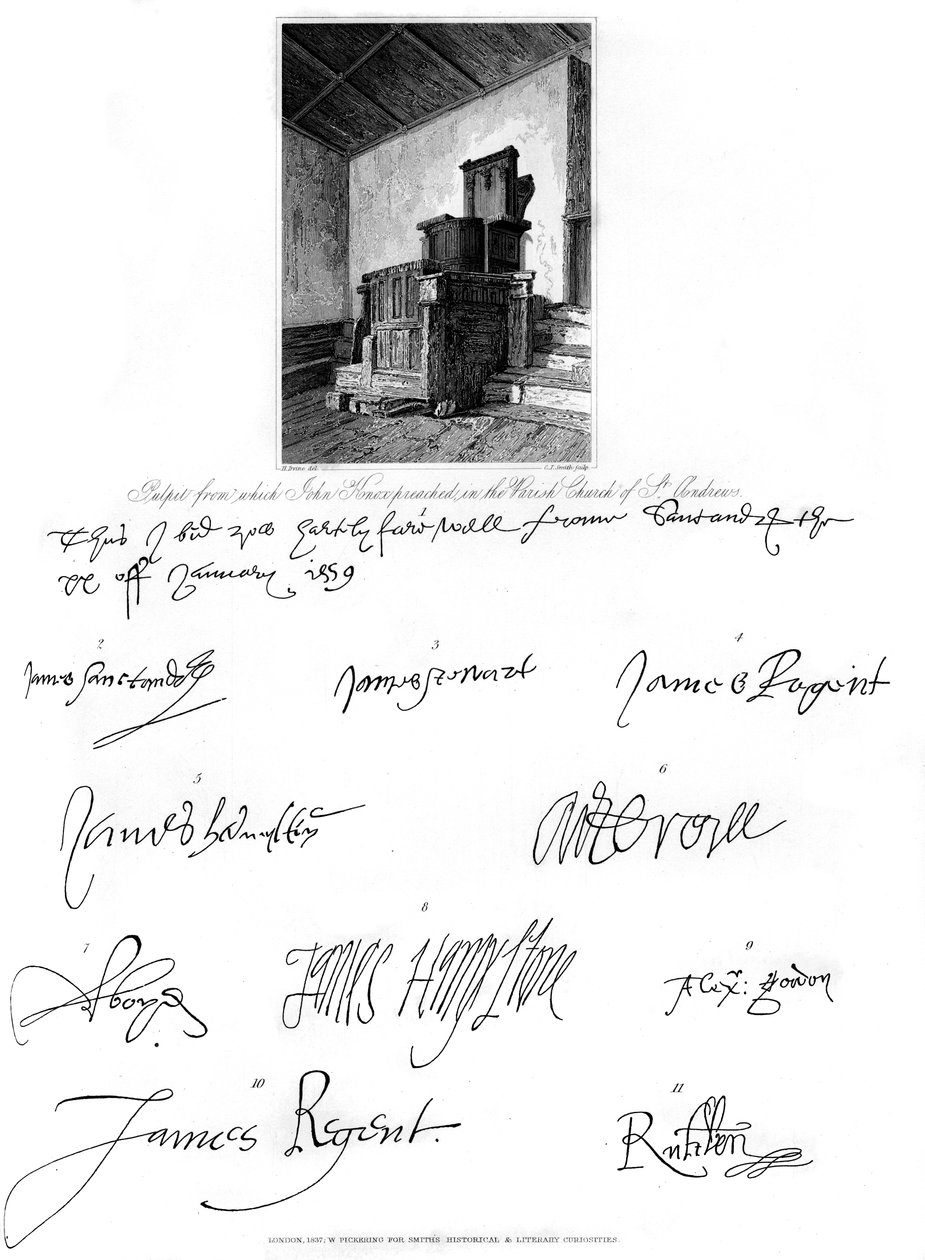 H. Irvine del.
C. J. Smith sculp.
Pulpit from which John Knox preached, in the Parish Church of St. Andrews.
Thus I bid you hartely fair well frome Sanctand the
xx off January, 1559
2
James Sanctand
3
James Stewart
4
James Regent
5
James hamyltin
6
7
Aboyn
8
James Hamyltone
9
Alexr: Gordon
10
James Regent.
11
Ruthven
LONDON, 1837; W PICKERING FOR SMITH'S HISTORICAL & LITERARY CURIOSITIES.